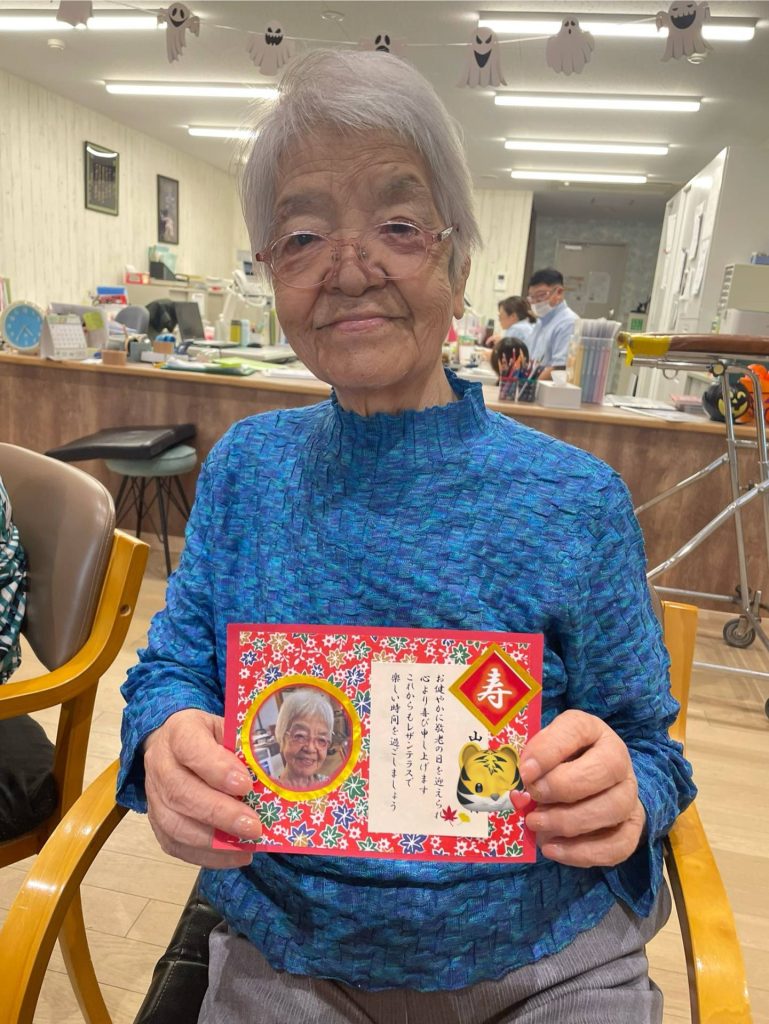 寿
お健やかに敬老の日を迎えられ
心より喜び申し上げます
これからもレザンテラスで
楽しい時間を過ごしましょう
山